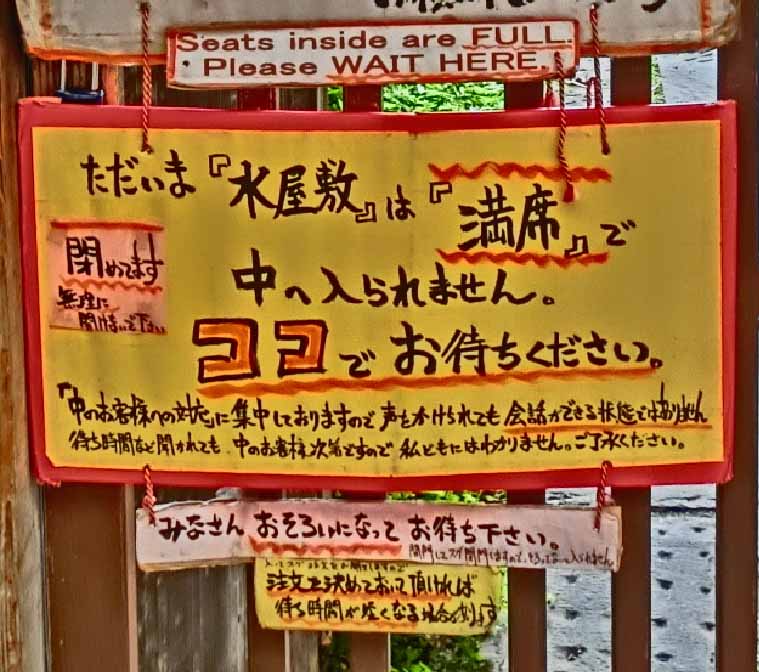 Seats inside are FULL.
・Please WAIT HERE.
ただいま『水屋敷』は『満席』で
中へ入られません。
閉めてます
無理に
開けないで下さい
ココでお待ちください。
「中のお客様への対応」に集中しておりますので声をかけられても会話ができる状態ではありません
待ち時間など聞かれても中のお客様次第ですので私どもにはわかりません。ご了承ください。
みなさんおそろいになってお待ち下さい。
注文を決めておいて頂ければ
待ち時間が短くなる場合があります